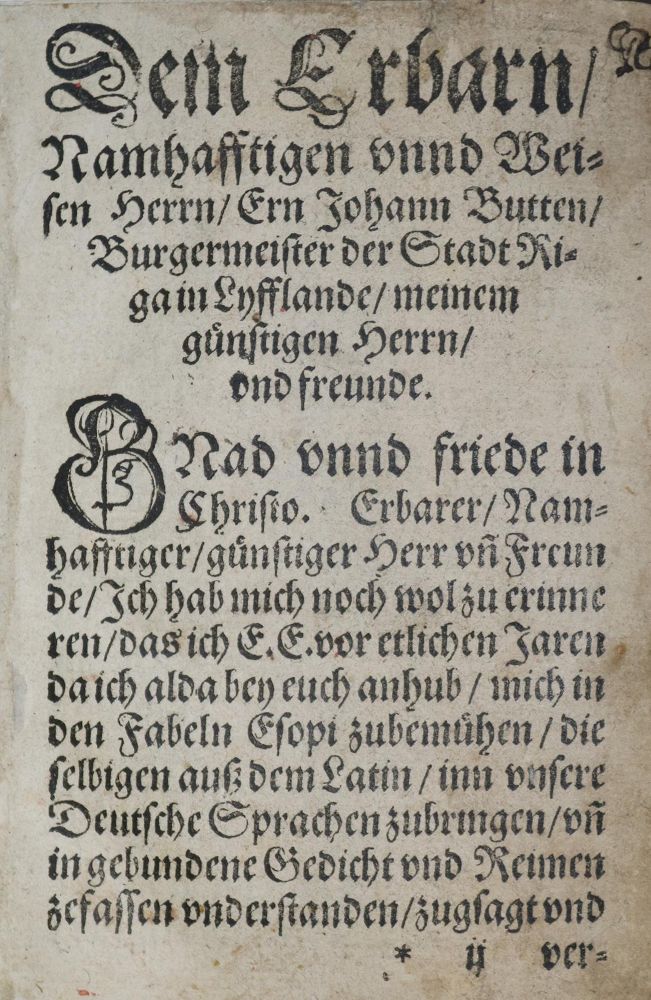 Dem Erbarn/
Namhafftigen vnnd Wei⸗
sen Herrn/ Ern Johann Butten/
Burgermeister der Stadt Ri⸗
ga in Lyfflande/ meinem
günstigen Herrn/
vnd freunde.
GNad vnnd friede in
Christo. Erbarer/ Nam⸗
hafftiger/ günstiger Herr vñ Freun
de/ Ich hab mich noch wol zu erinne
ren/ das ich E. E. vor etlichen Jaren
da ich alda bey euch anhub/ mich in
den Fabeln Esopi zubemühen/ die
selbigen auß dem Latin/ inn vnsere
Deutsche Sprachen zubringen/ vñ
in gebundene Gedicht vnd Reimen
zefassen vnderstanden/ zugsagt vnd
* ij ver⸗